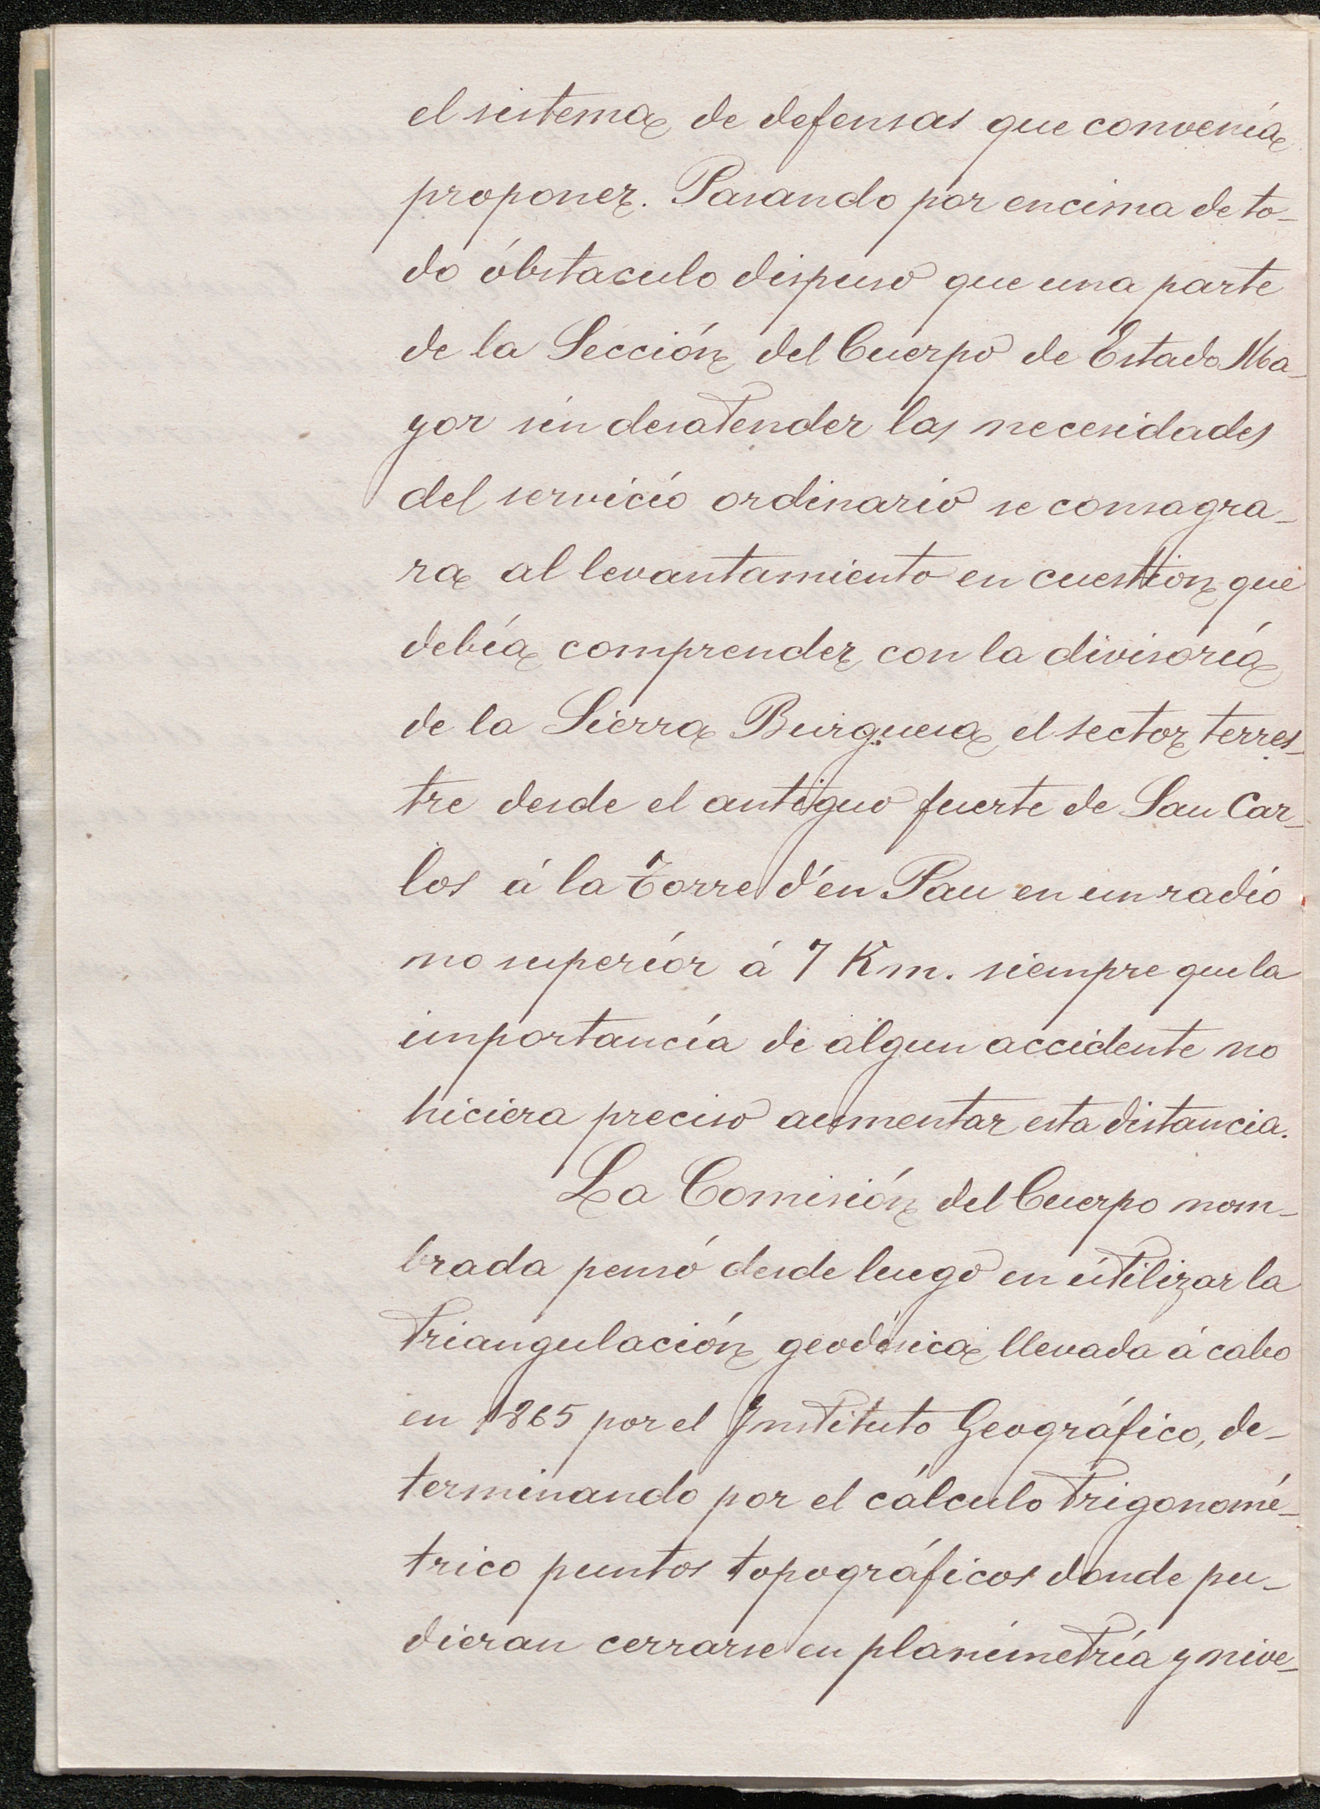 el sistema de defensas que convenía
proponer. Pasando por encima de to-
do óbstaculo dispuso que una parte
de la Sección del Cuerpo de Estado Ma-
yor sin desatender las necesidades
del servicio ordinario se consagra-
ra al levantamiento en cuestion que
debía comprender con la divisoría
de la Sierra Burguesa el sector terres-
tre desde el antiguo fuerte de San Car-
los á la Torre d'en Pau en un radio
no superiór á 7 Km. siempre que la
importancía de algun accidente no
hiciera preciso aumentar esta distancia.
La Comisión del Cuerpo nom-
brada pensó desde luego en utilizar la
triangulación geodésica llevada á cabo
en 1865 por el Instituto Geográfico, de-
terminando por el cálculo trigonomé-
trico puntos topográficos donde pu-
dieran cerrarse en planimetría y nive-